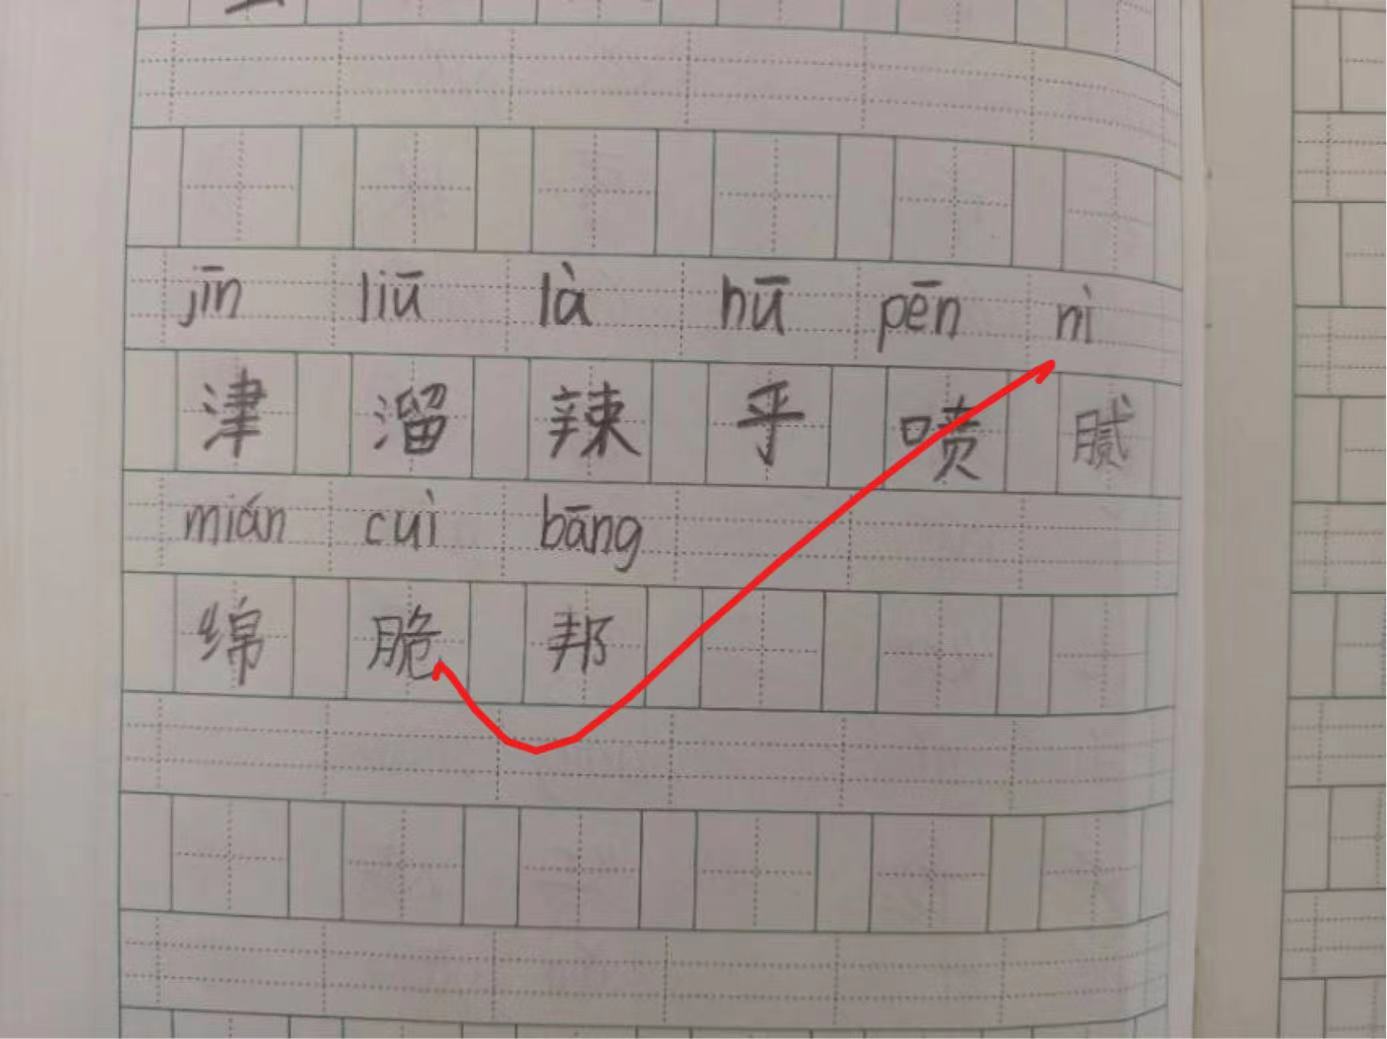 jīn liū là hū pēn nì
津 溜 辣 乎 喷 腻
mián cuì bāng
绵 脆 邦